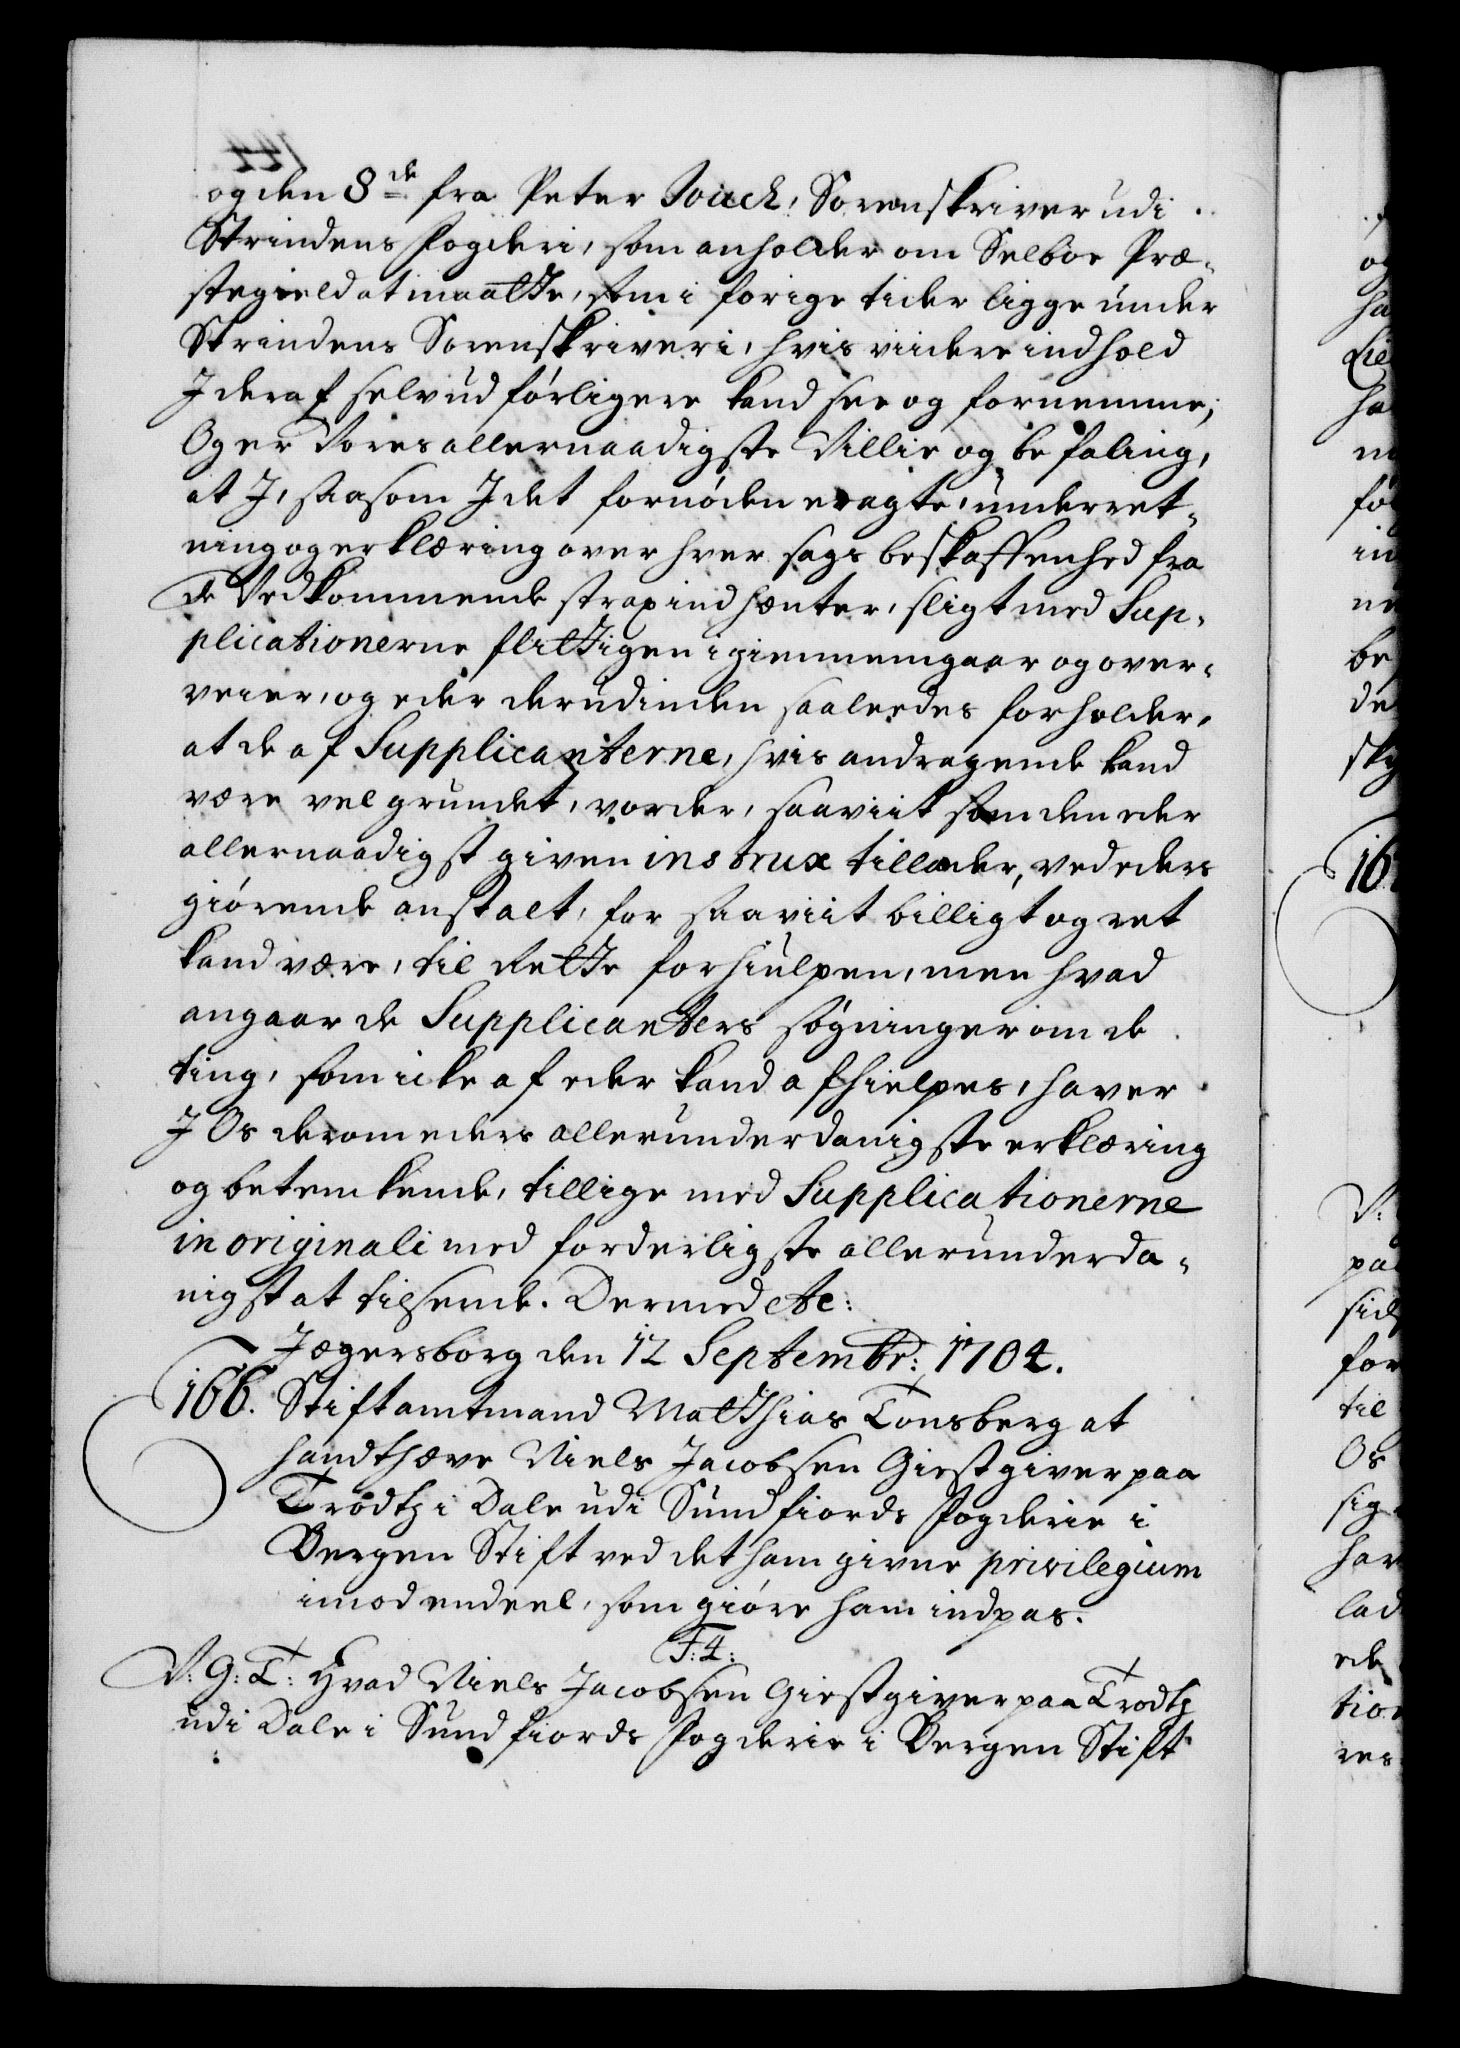 og den 8de fra Peter Juuch, Sorenskriver udi
Strindens Fogderi, som anholder om Selboe Præ-
stegield at maatte, som i forige tider ligge under
Strindens Sorenskriveri, hvis viidere indhold
J deraf selv udførligere kand see og fornemme;
Og er Vores allernaadigste Villie og befaling,
at J, saasom J det fornøden eragte, underret-
ning og erklæring over hver sags beskaffenhed fra
de Vedkommende strax indhænter, sligt med Sup-
plicationerne flittigen igiennemgaar og over-
veier, og eder derudinden saaledes forholder,
at de af Supplicanterne, hvis andragende kand
være vel grundet, vorder, saaviit som den eder
allernaadigst given instrux tillader, ved eders
giørende anstalt, for saaviit billigt og ret
kand være, til rette forhiulpen, men hvad
angaar de Supplicanters søgninger om de
ting, som icke af eder kand afhielpes, haver
J Os derom eders allerunderdanigste erklæring
og betenkende, tillige med Supplicationerne
in originali med forderligste allerunderda-
nigst at tilsende. Dermed etc:
Jægersborg den 12 Septembr: 1704.
166. Stiftamtmand Matthias Tonsberg at
handthæve Niels Jacobsen Giestgiver paa
Trodtz i Dale udi Sundfiords Fogderie i
Bergen Stift ved det ham givne privilegium
imod endeel, som giøre ham indpas.
F: 4:
V: G: T: Hvad Niels Jacobsen Giestgiver paa Trodtz
udi Dale i Sundfiords Fogderie i Bergen Stift